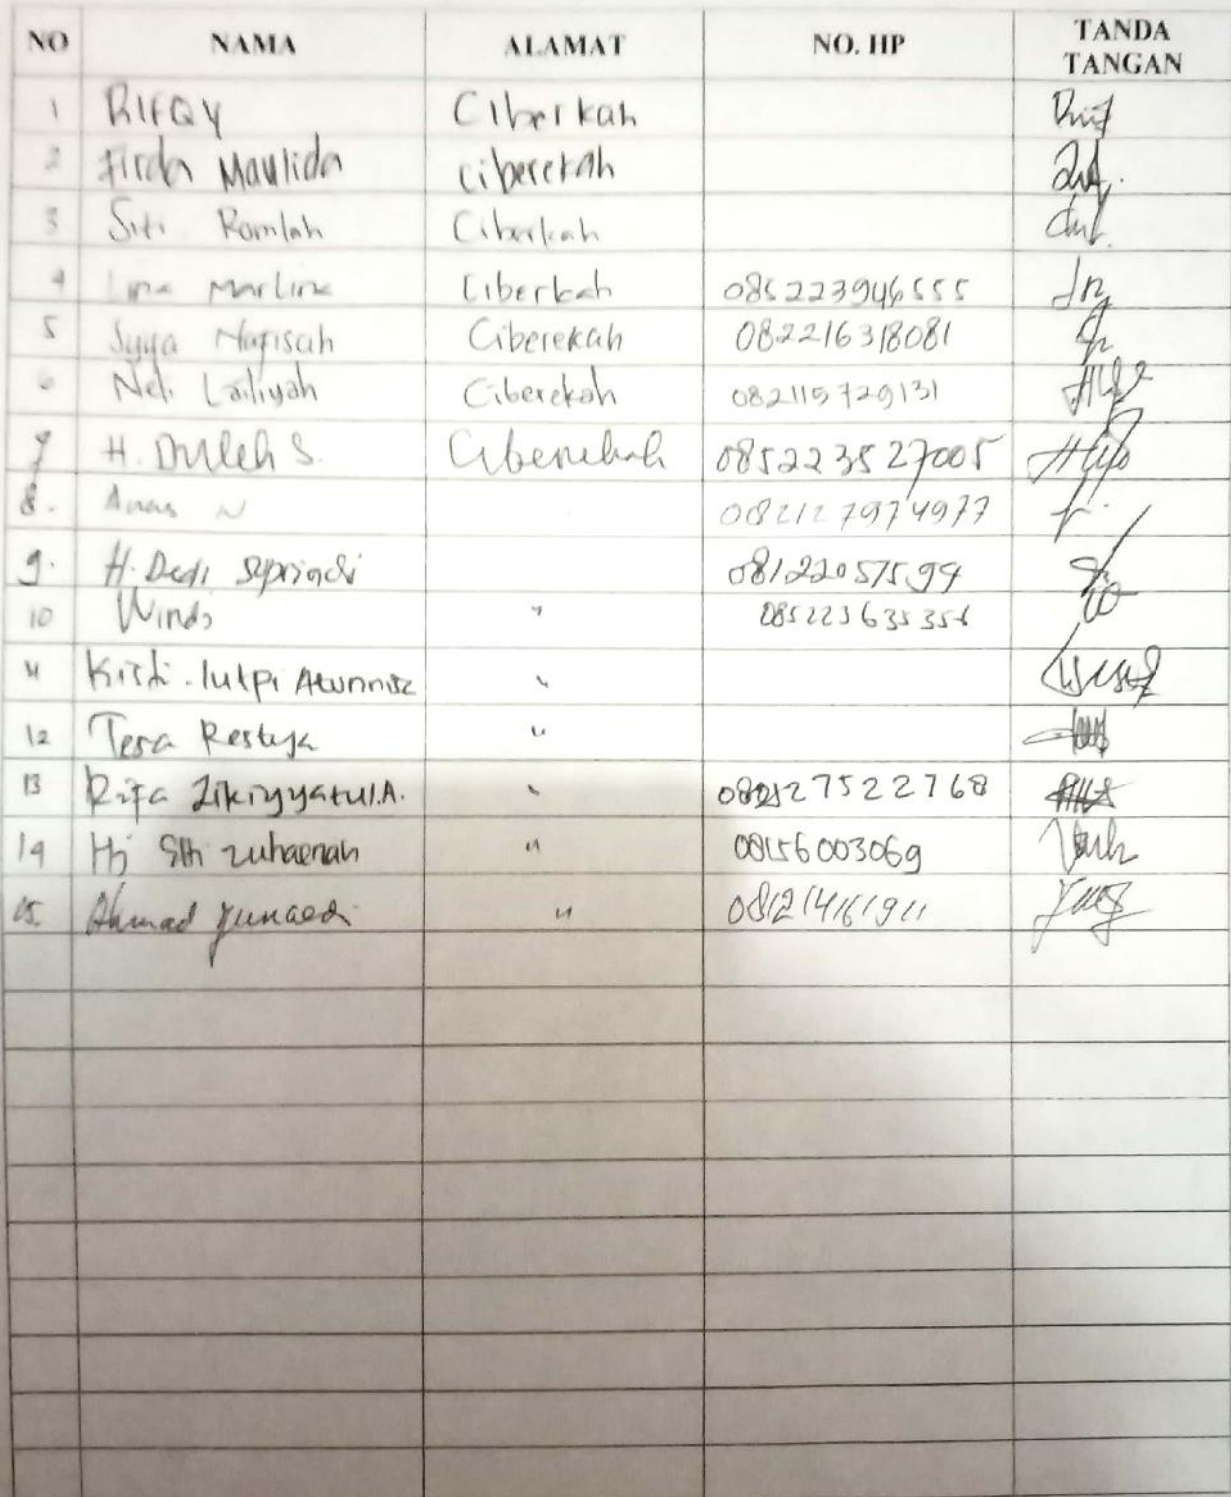 NO NAMA ALAMAT NO. HP TANDA TANGAN
1 RIFQY Ciberkah
2 Firda Maulida ciberekah
3 Siti Romlah Ciberkah
4 Lina Marlina Ciberkah 085223946555
5 Syya Nafisah Ciberekah 082216318081
6 Neli Lailiyah Ciberekah 082115729131
7 H. Duleh S. Ciberekah 085223527005
8. Anas N 082127974977
9. H. Dedi Supriadi 081220571599
10 Winda " 085223635356
11 Kisti " 
12 Tesa Restuya "
13 Rifa Zikiyyatul.A. " 27522768
14 Hj Siti zuhaenah " 08156003069
15. Ahmad Junaedi " 081214161911